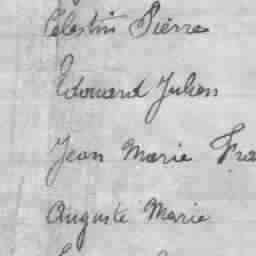 Célestin Pierre
Edouard Julien
Jean Marie Fra
Auguste Marie